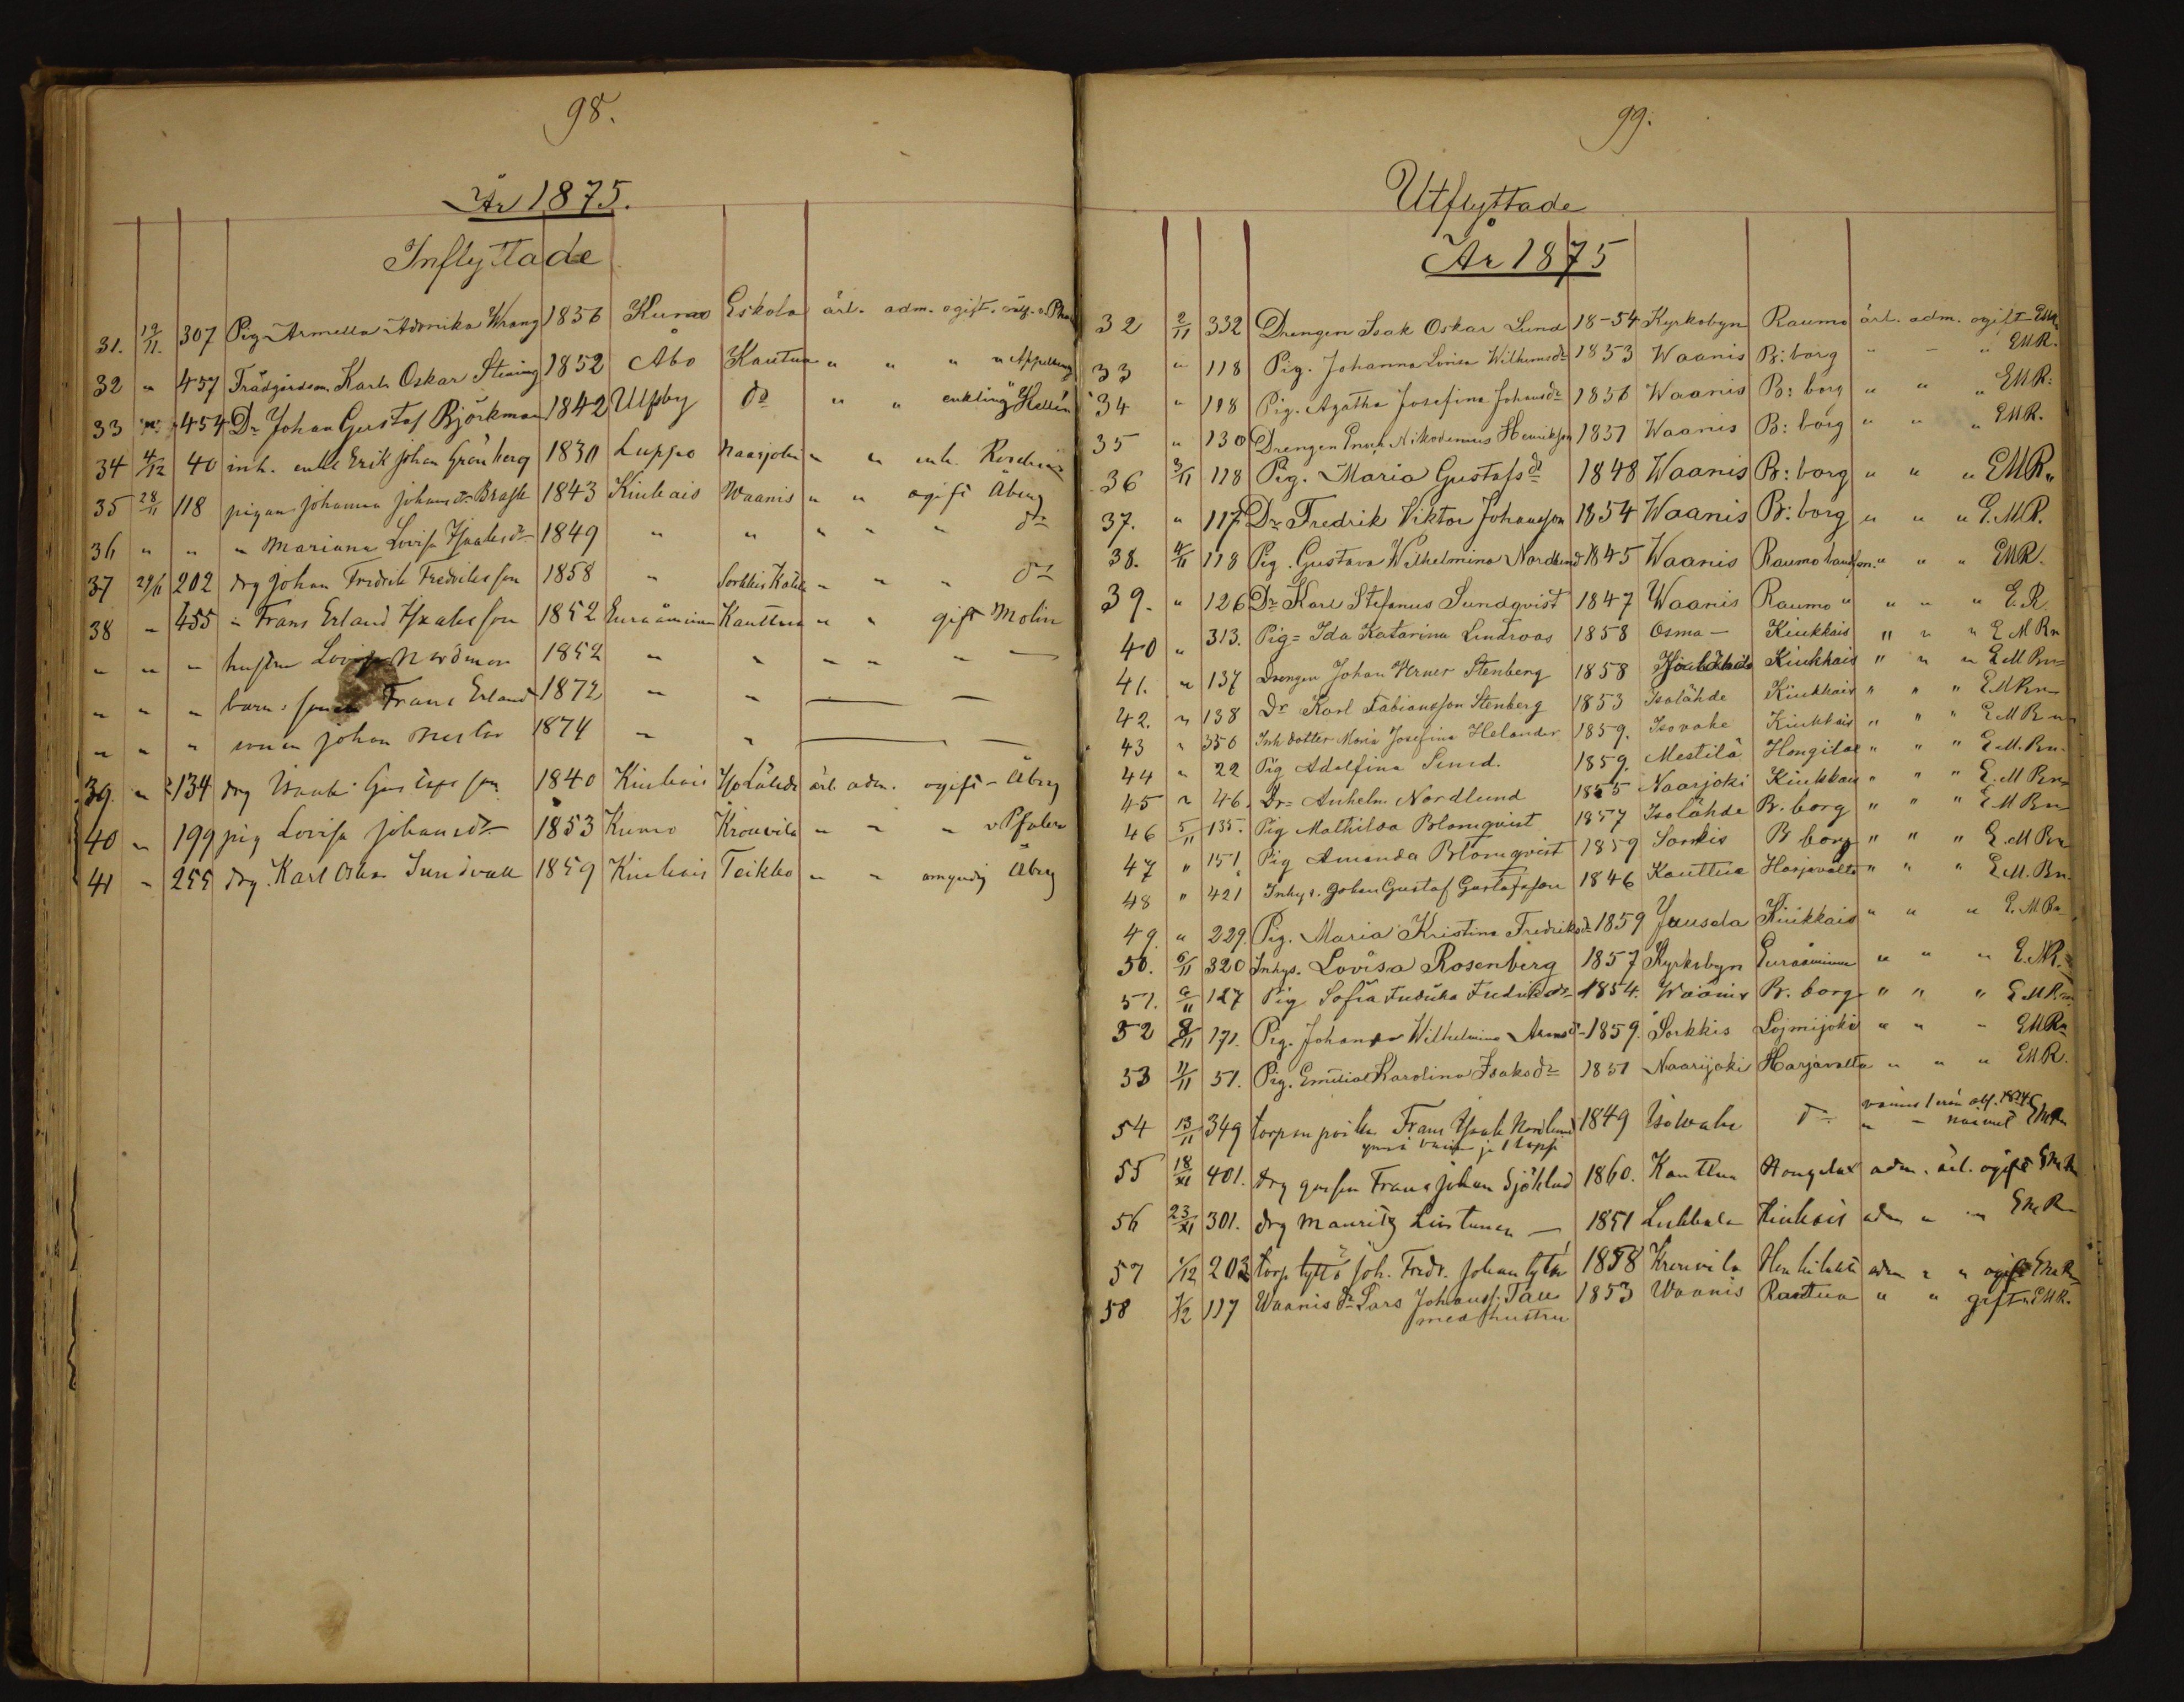 98.
År 1875.
Inflyttade
31. 19/11. 307 Pig. Armella Adonika Wrang 1856 Kumo Eskola ärl. adm. ogift.
32 " 457 Trädgårdsm. Karl Oskar 1852 Åbo Kautua " " "
33 454 Dr Johan Gustaf Björkman 1842 Ulfsby do " " enkling Hellén
34 4/12 40 inh. enkl Erik Johan Grönberg 1830 Luppo Naarjoki " " enk.
35 28/11 118 pigan Johanna Johansdr 1843 Kiukais Waanis " " ogift Åberg
36 " " " Mariana Lovisa Isaksdr 1849 " " " " " do
37 29/11 202 drg Johan Fredrik Fredriksson 1858 " Sorkkis " " " do
38 " 455 " Frans Erland Isaksson 1852 Euraåminne Kauttua " " gift Molin
" " " hustru Lovisa Nordman 1852 " " " " " —
" " " barn: Frans Erland 1872 " " — —
" " " Johan Nestor 1874 " " — —
39. " 134 drg Isaak Gustafsson 1840 Kiukais Isolähde ärl. adm. ogift - Åberg
40 " 199 pig Lovisa Johansdr 1853 Kumo Krouvila " " " v Pfaler
41 " 255 drg. Karl Oskar Sundvall 1859 Kiukais Teikko " " omyndig Åberg
99.
Utflyttade
År 1875
32 2/11 332 Drengen Isak Oskar Lund 18-54 Kyrkobyn Raumo ärl. adm. ogift EMR
33 " 118 Pig. Johanna Lovisa Wilhemsdr 1853 Waanis B:borg " - " EMR.
34 " 118 Pig. Agatha Josefina Johansdr 1856 Waanis B:borg " " " EMR.
35 " 130 Drengen Enock Nikodemus Henriksson 1851 Waanis B:borg " " " EMR.
36 3/11 118 Pig. Maria Gustafsdr 1848 Waanis B:borg " " " EMR"
37. " 117 Dr Fredrik Viktor Johansson 1854 Waanis B:borg " " " E.M.R.
38. 4/11 118 Pig. Gustava Wilhelmina Nordlund 1845 Waanis Raumo landsn. " " " EMR.
39. " 126 Dr Karl Stefanus Sundqvist 1847 Waanis Raumo " " " " E.R.
40 " 313. Pig= Ida Katarina Lindroos 1858 Osma — Kiukkais " " " E M Rn
41. " 137 Drengen Johan Verner Stenberg 1858 Isolähde Kiukkais " " " E M Rn
42. " 138 Dr Karl Fabiansson Stenberg 1853 Isolähde Kiukkais " " " EMRn
43 " 350 Inh dotter Maria Josefina Helander 1859. Isovahe Kiukkais " " " E M Rn
44 " 22 Pig Adolfina Sund. 1859. Mestilä Hongilax " " " E.M.Rn.
45 " 46. Dr= Anhelm Nordlund 1855 Naarjoki Kiukkais " " " E.M Rn
46 5/11 135. Pig Mathilda Blomqvist 1857 Isolähde B.borg " " " E M Rn
47 " 151 Pig Amanda Blomqvist 1859 Sorkkis B borg " " " E.M Rn
48 " 421 Inhys. Johan Gustaf Gustafsson 1846 Kauttua Harjavalta " " " E.M.Rn.
49. " 229. Pig. Maria Kristina Fredriksdr 1859 Yuusela Kiukkais " " " E.M.Rn
50. 6/11 320 Inhys. Lovisa Rosenberg 1857 Kyrkobyn Euraåminne " " " E.M.R.
51. 6/11 127 Pig Sofia Fredrika Fredriksdr 1854. Waanis B.borg " " " E M Rn
52 8/11 171. Pig. Johanna Wilhelmina 1859. Sorkkis Lojmijoki " " - EMRn
53 11/11 51. Pig. Emilia Karolina Isaksdr 1851 Naarijoki Harjavalta " " " EMR.
54 13/11 349 torpan poika Frans Isak Nordlund 1849 Isovahe do " - nainut EMRn
55 18/XI 401. drg gossen Frans Johan Sjöblad 1860. Kauttua Hongilax adm. ärl. ogift EMRn
56 23/XI 301. drg Mauritz Liistunen — 1851 Lukkala Kiukais adm " " EMRn
57 1/12 203 torp tyttö Joh. Fredr. 1858 Krouvila adm " " ogift EMRn
58 1/12 117 Waanis Dr Lars Johanss. Tau 1853 Waanis Kautua " " gift " EMR.
med hustru